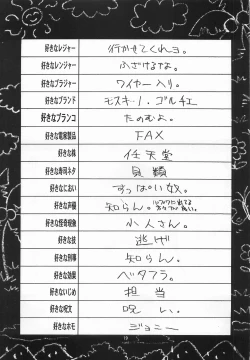 好きなレジャー 行かせてくれョ。
好きなレンジャー ふざけるなよ。
好きなブラジャー ワイヤー入り。
好きなブランド モスキーノ・ゴルチェ
好きなブランコ たのむよ。
好きな電家製品 FAX
好きな株 任天堂
好きな寿司ネタ 貝類
好きなにおい すっぱい奴。
好きな声優 知らん。
好きな怪奇現象 小人さん。
好きな技 逃げ
好きな刑事 知らん。
好きな効果 ベタフラ。
好きないじめ 担当
好きな呪文 呪い。
好きなホモ ジョニー